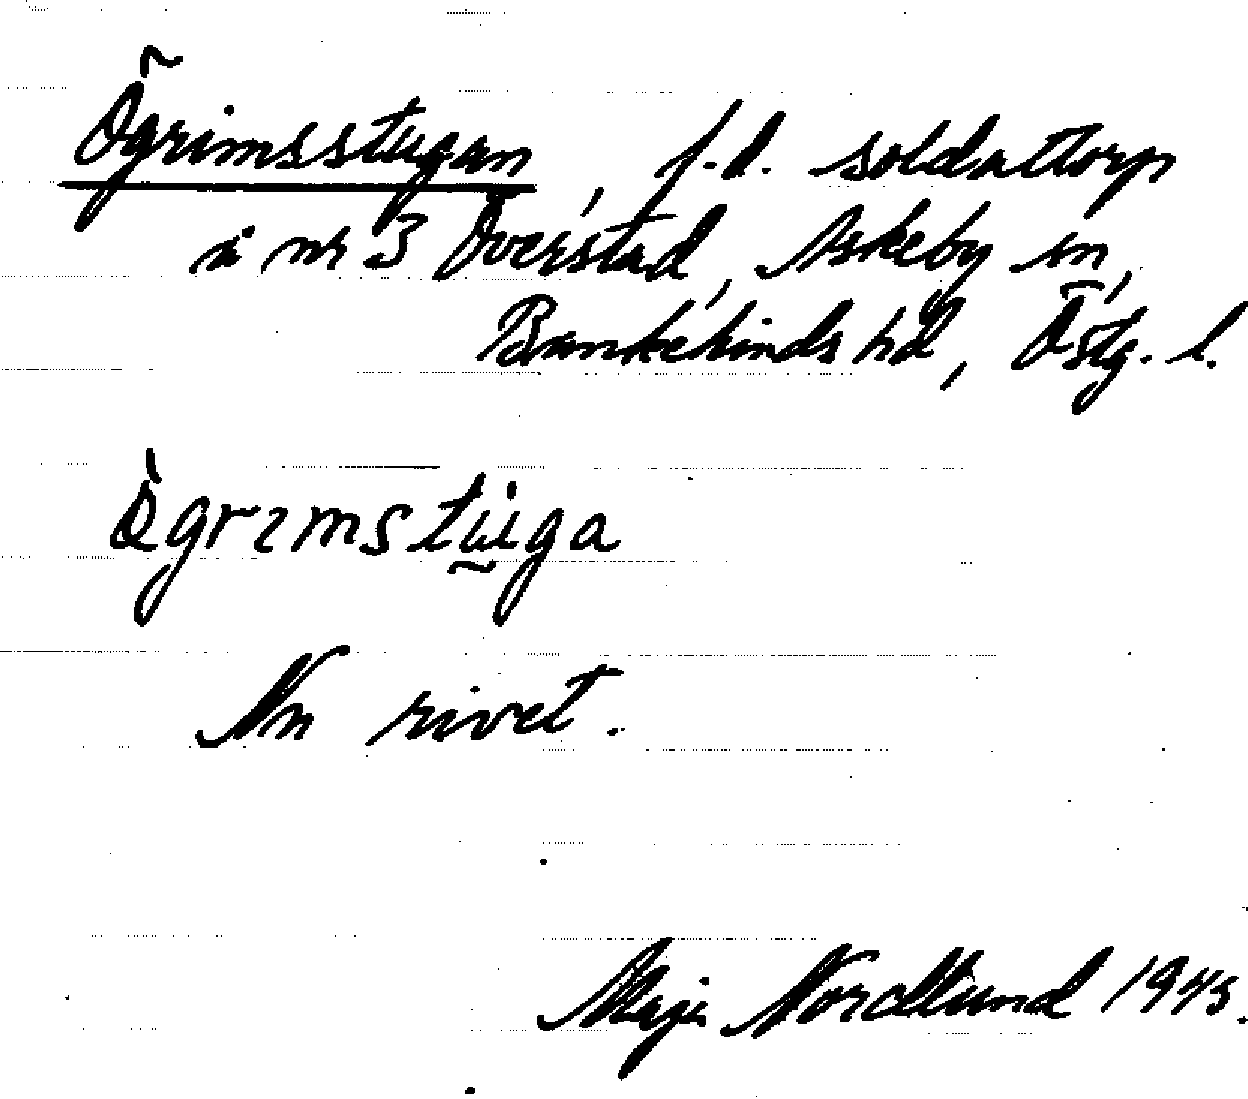 Ögrimsstugan, f.d. soldattorp
å nr 3 Överstad, Askeby sn,
Bankekinds hd, Östg. l.
Ògrımstuga
Nn rivet.
Maja Nordlund 1945.